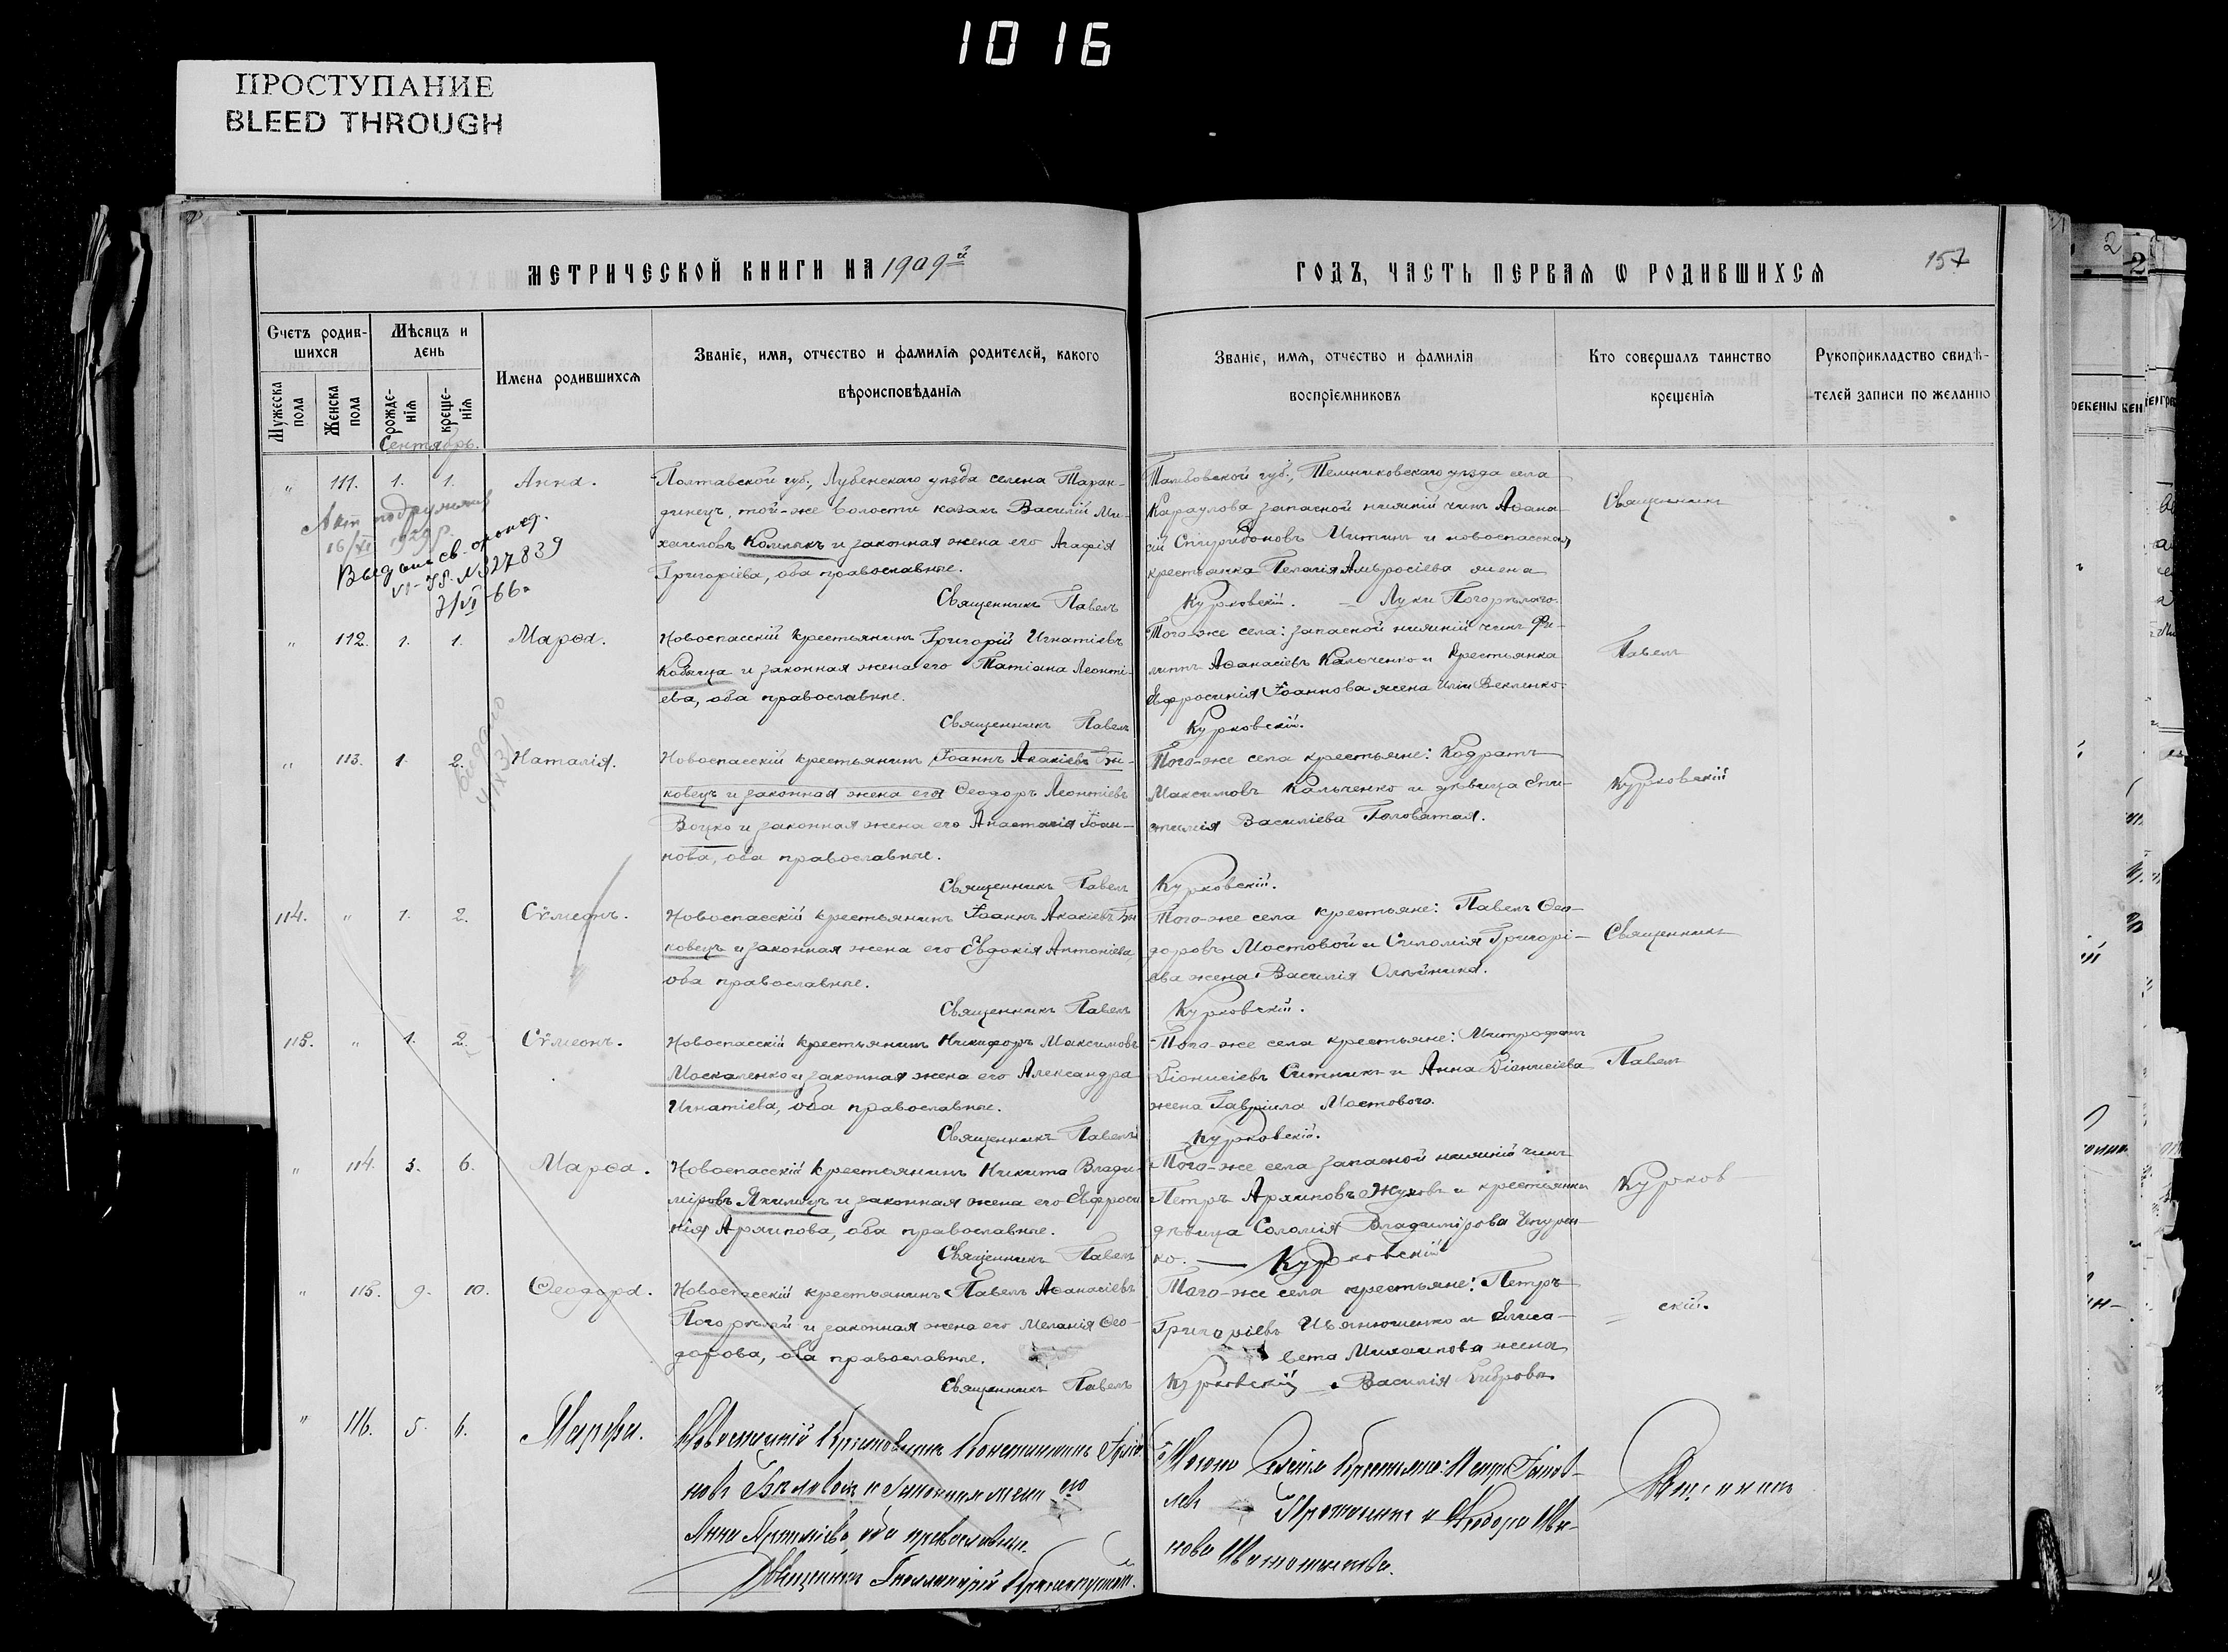 1016
ПРОСТУПАНИЕ
BLEED THROUGH
МЕТРИЧЕСКОЙ КНИГИ НА 1909й
ГОДЪ, ЧАСТЬ ПЕРВАЯ Ѡ РОДИВШИХСЯ
157
Счетъ родив-
шихся
Мѣсяцъ и
день
Имена родившихся
Званіе, имя, отчество и фамилія родителей, какого
вѣроисповѣданія
Званіе, имя, отчество и фамилія
воспріемниковъ
Кто совершалъ таинство
крещенія
Рукоприкладство свидѣ-
телей записи по желанію
Мужеска
пола
Женска
пола
рожде-
нія
креще-
нія
Сентябрь.
" 111. 1. 1. Анна.
Полтавской губ., Лубенскаго уѣзда селена Таран-
динецъ, той-же волости казакъ Василій Ми-
хаиловъ и законная жена его Агафія
Григоріева, оба православные.
Священникъ Павелъ
Тамбовской губ., Темниковскаго уѣзда села
Караулова запасной нижній чинъ Аѳана-
сій Спиридоновъ и новоспасская
крестьянка Пелагія Амвросіева жена
Курковскій. Луки Погорѣлаго.
Священникъ
Акт
16/VI 1929 р.
Выдано св.
VI-ЯР-№327839
7/VI-66г
" 112. 1. 1. Марѳа.
Новоспасскій крестьянинъ Григорій Игнатіевъ
Кобица и законная жена его Татіана Леонті-
ева, оба православные.
Священникъ Павелъ
Того-же села: запасной нижній чинъ Фи-
липпъ Аѳанасіевъ Кальченко и крестьянка
Евфросинія Іоаннова жена Иліи Векленко
Курковскій.
Павелъ
" 113. 1. 2. Наталія.
Новоспасскій крестьянинъ Іоаннъ Акакіевъ Бы-
ковецъ и законная жена его Ѳеодоръ Леонтіевъ
Воцко и законная жена его Анастасія Іоан-
нова, оба православные.
Священникъ Павелъ
Того-же села крестьяне: Кодратъ
Максимовъ Кальченко и дѣвица
Василіева Головатая.
Курковскій.
Курковскій
114. " 1. 2. Сѵмеонъ.
Новоспасскій крестьянинъ Іоаннъ Акакіевъ Бы
ковецъ и законная жена его Евдокія Антоніева,
оба православные.
Священникъ Павелъ
Того-же села крестьяне: Павелъ Ѳео-
доровъ Мостовой и Соломія Григорі-
ева жена Василія Олѣйника.
Курковскій.
Священникъ
115. " 1. 2. Сѵмеонъ.
Новоспасскій крестьянинъ Никифоръ Максимовъ
Москаленко и законная жена его Александра
Игнатіева, оба православные.
Священникъ Павелъ
Того-же села крестьяне: Митрофанъ
Діонисіевъ Ситникъ и Анна Діонисіева
жена Гавріила Мостового.
Курковскій.
Павелъ
" 114. 3. 6. Марѳа.
Новоспасскій крестьянинъ Никита Влади-
міровъ Якимецъ и законная жена его Евфроси
нія Архипова, оба православные.
Священникъ Павелъ
Того-же села запасной нижній чинъ
Петръ Архиповъ Жуковъ и крестьянка
дѣвица Соломія Владимірова
ко. — Курковскій
Курков
" 115. 9. 10. Ѳеодора.
Новоспасскій крестьянинъ Павелъ Аѳанасіевъ
Погорѣлый и законная жена его Меланія Ѳео-
дорова, оба православные.
Священникъ Павелъ
Того-же села крестьяне: Петръ
Григоріевъ Иванющенко и Елиса-
вета Михаилова жена
Курковскій Василія
= скій.
" 116. 5. 6. Марфа.
Новоспасскій Крестьянинъ Константинъ
новъ и законная жена его
Анна, оба православные.
Священникъ
Того-же Селенія Крестьяне: Петръ
и Ѳеодора Ива-
нова
Священникъ